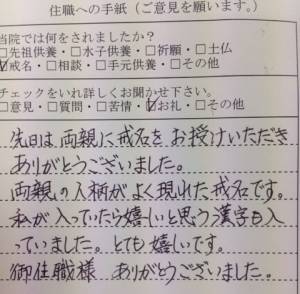 住職への手紙(ご意見を願います。)
当院では何をされましたか?
□先祖供養・□水子供養・□祈願・□土仏
☑戒名・□相談・□手元供養・□その他
チェックをいれ詳しくお聞かせ下さい。
□意見・□質問・□苦情・☑お礼・□その他
先日は両親に戒名をお授けいただき
ありがとうございました。
両親の人柄がよく現れた戒名です。
私が入っていたら嬉しいと思う漢字も入
っていました。とても嬉しいです。
御住職様 ありがとうございました。